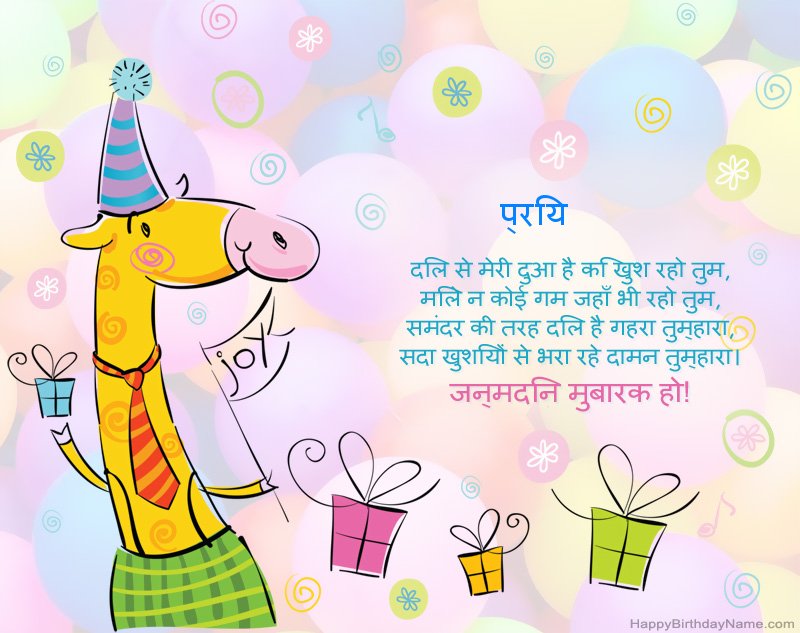 प्रिय
दिल से मेरी दुआ है कि खुश रहो तुम,
मिले न कोई गम जहाँ भी रहो तुम,
समंदर की तरह दिल है गहरा तुम्हारा,
सदा खुशियों से भरा रहे दामन तुम्हारा।
जन्मदिन मुबारक हो!
joy
HappyBirthdayName.com